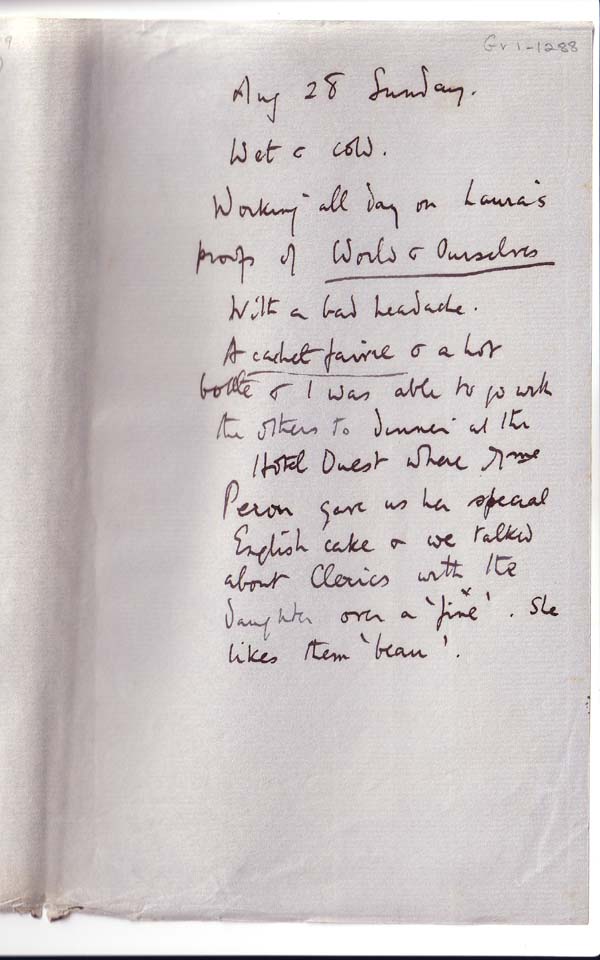 Gv1-1288
Aug 28 Sunday.
Wet & cold.
Working all day on Laura's
proofs of World & Ourselves
With a bad headache.
A cachet faivre & a hot
bottle & I was able to go with
the others to dinner at the
Hotel Ouest where Mme
Peron gave us her special
English cake & we talked
about Clerics with the
daughter over a 'fine'. She
likes them 'beau'.